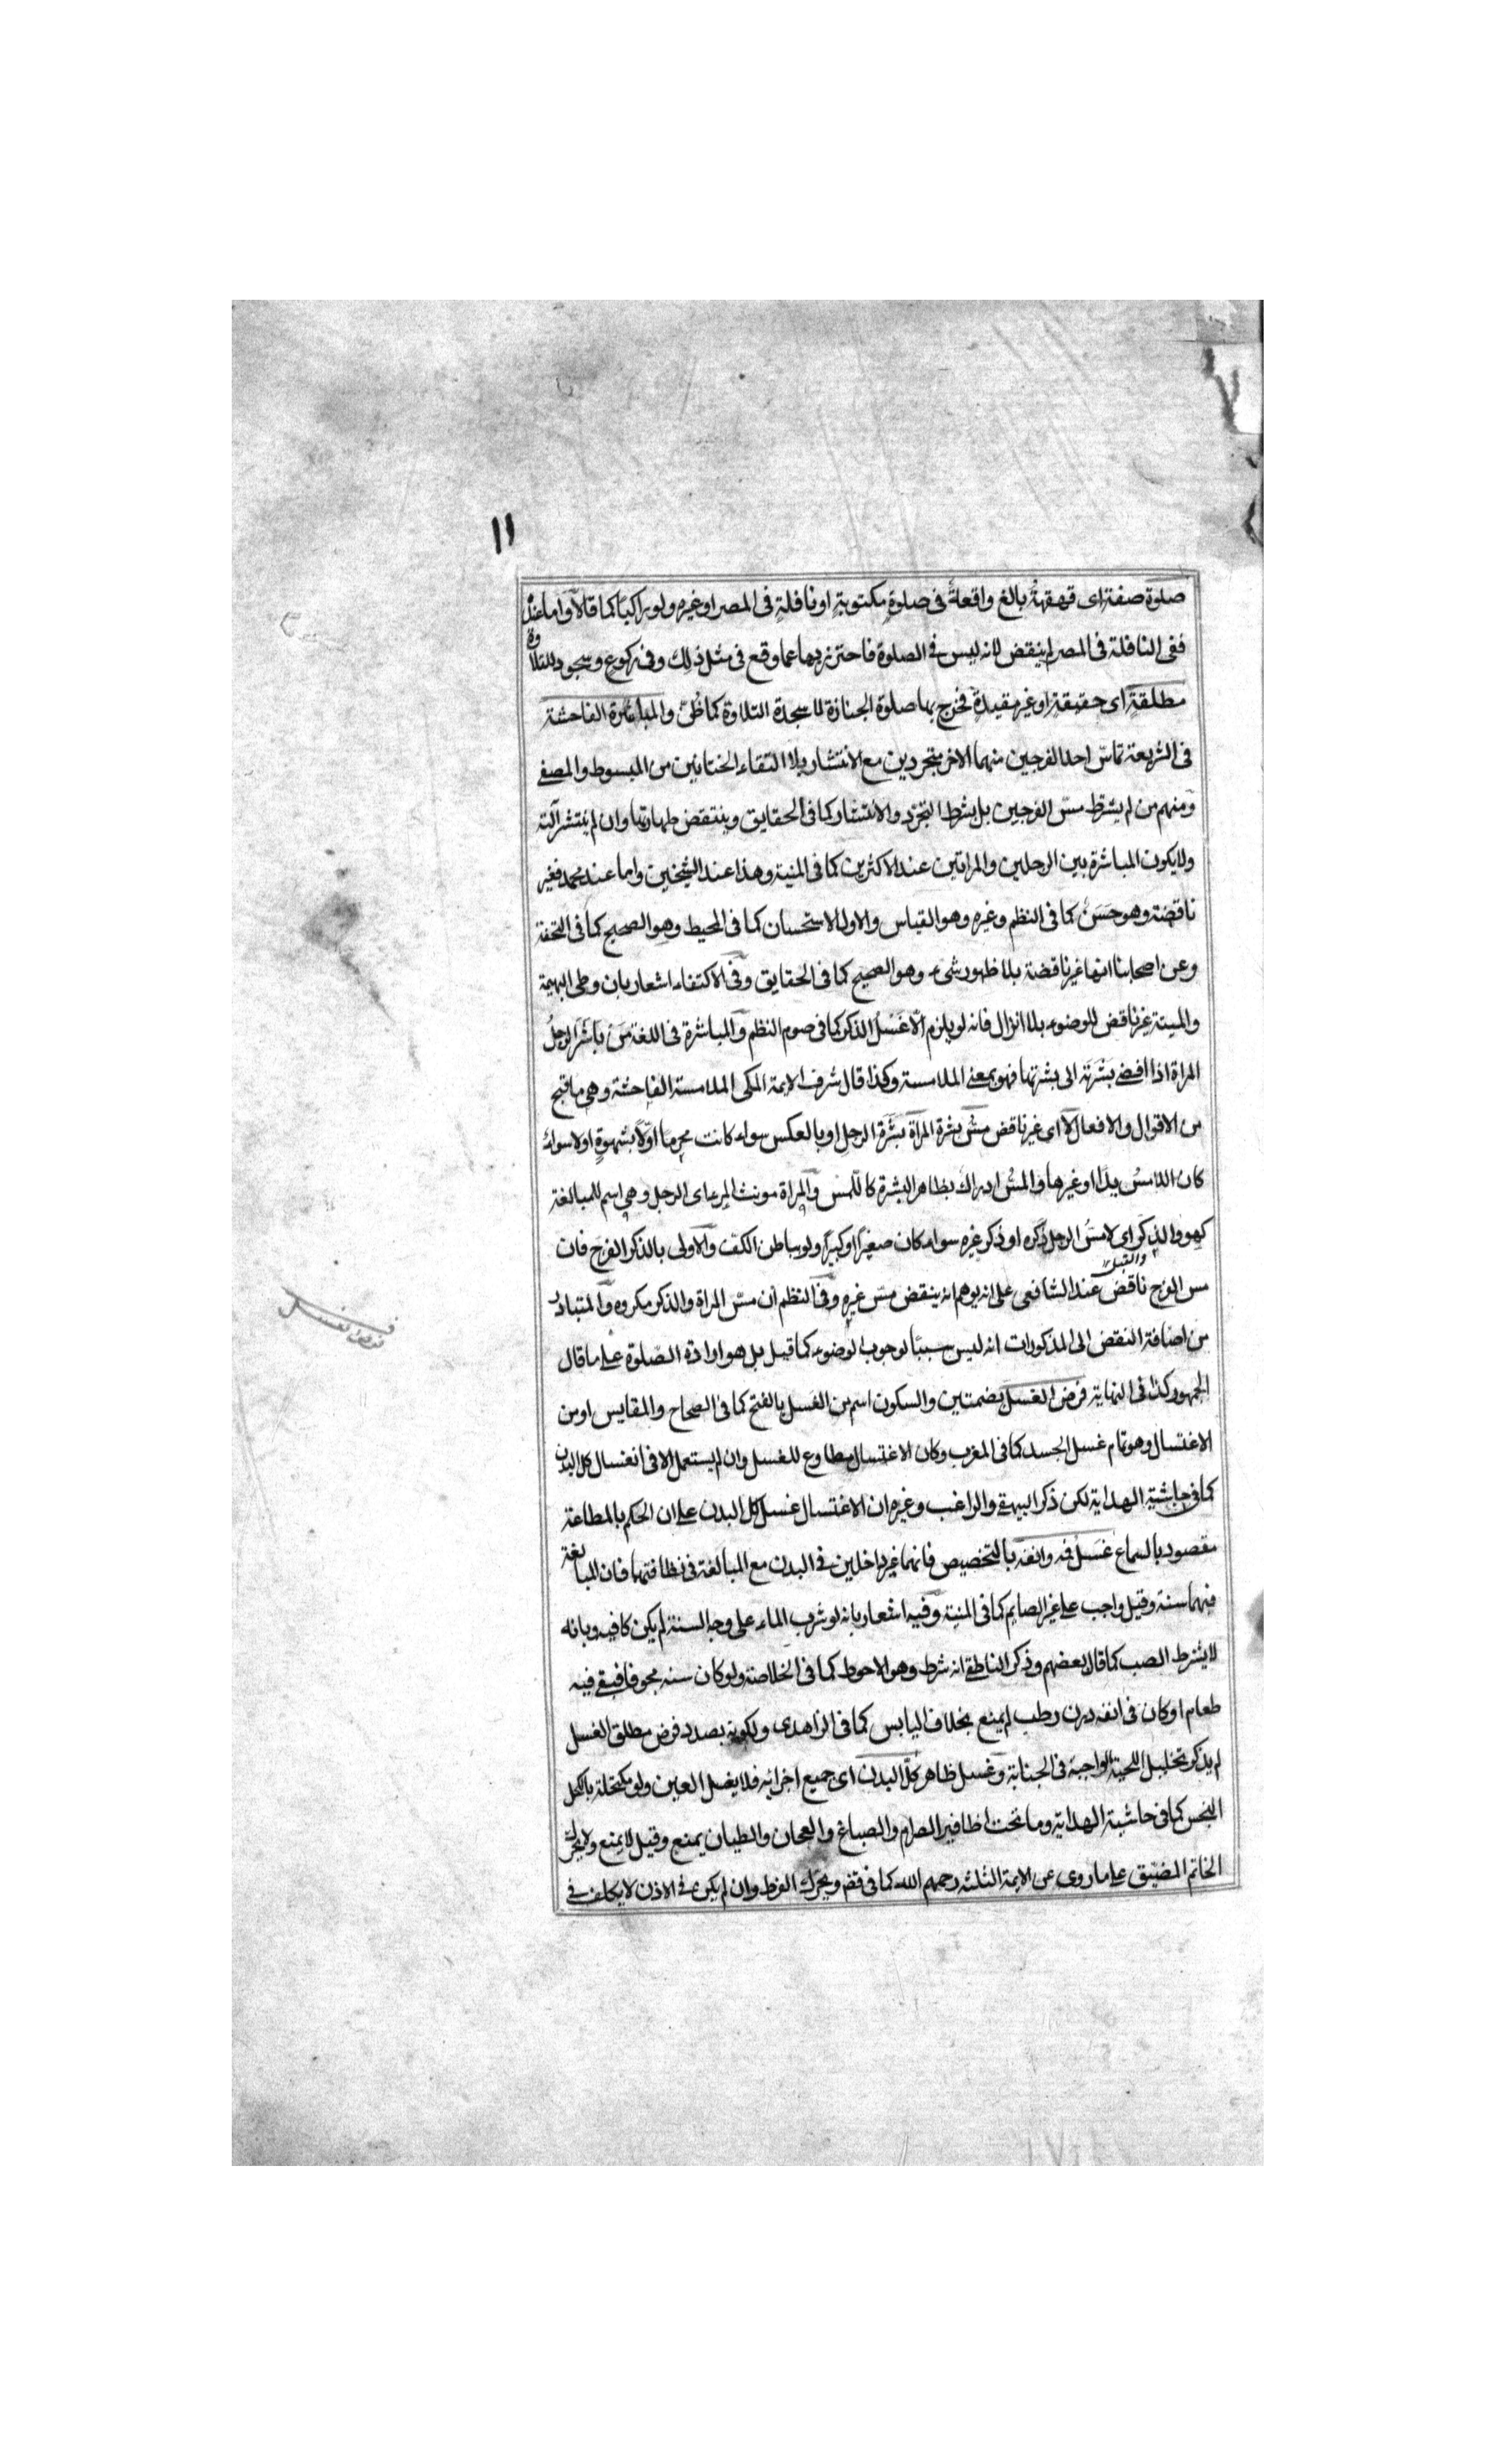 ١١
صلوة صفة اى قهقهة بالغ واقعة فى صلوة مكتوبة او نافلة فى المصر او غيره ولو راكبا كما قالا واما عنده
ففى النافلة فى المصر لم ينقض لانه ليس فى الصلوة فاحترز بها عما وقع فى مثل ذلك وفى ركوع وسجود للتلاوة
مطلقة اى حقيقة او غير مقيدة فخرج بها صلوة الجنازة لا سجدة التلاوة كما ظُنّ والمباشرة الفاحشة
فى الشريعة تماسّ احد الفرجين منهما الاخر متجردين مع الانتشار بلا التقاء الختانين من المبسوط والمصفى
ومنهم من لم يشرط مسّ الفرجين بل يشرط التجرّد والانتشار كما فى الحقايق وينتقض طهارتها وان لم ينتشر آلته
ولا يكون المباشرة بين الرجلين والمراتين عند الاكثرين كما فى المنية وهذا عند الشيخين واما عند محمد فغير
ناقضة وهو حَسَنٌ كما فى النظم وغيره وهو القياس والاول الاستحسان كما فى المحيط وهو الصحيح كما فى التحفة
وعن اصحابنا انها غير ناقضة بلا ظهور شىء وهو الصحيح كما فى الحقايق وفى الاكتفاء اشعار بان وطى البهيمة
والميتة غير ناقض للوضوء بلا انزال فانه لو يلزم الّا غَسْلُ الذكر كما فى صوم النظم والمباشرة فى اللغة من باشَرَ الرجلُ
المراة اذا افضى بَشْرَته الى بشرتها فهو بمعنى الملامسة وكذا قال شرف الايمة المكى الملامسة الفاحشة وهى ما قبح
من الاقوال والافعال لا اى غير ناقض مسّ بشرة المرأة بشَرة الرجل او بالعكس سواء كانت محرما او لا بشهوةٍ او لا سواء
كان اللامسُ يدًا او غيرها والمسّ ادراك بظاهر البشرة كاللمس والمراة مونث المرء اى الرجل وهى اسم للمبالغة
كهو والذكَر اى لا مسُ الرجل ذكره او ذكر غيره سواء كان صغيرًا او كبيرًا ولو بباطن الكفّ والاولى بالذكر الفرج فان
والقبل
مس الفرج ناقض عند الشافعى على انه يوهم انه ينقض مسّ غيره وفى النظم ان مسّ المراة والذكر مكروه والمتبادر
من اضافة النقض الى المذكورات انه ليس سببًا لوجوب الوضوء كما قيل بل هو ارادة الصّلوة على ما قال
الجمهور كذا فى النهاية فرض الغسل بضمتين والسكون اسم من الغسل بالفتح كما فى الصحاح والمقايس او من
الاغتسال وهو تمام غسل الجسد كما فى المغرب وكان الاغتسال مطاوع للغسل وان لم يستعمل الا فى انغسال كل البدن
كما فى حاشية الهداية لكن ذكر البيهقى والراغب وغيره ان الاغتسال غسل كل البدن على ان الحكم بالمطاعة
مقصود بالسماع غَسلُ فمه وانفه بالتخصيص فانهما غير داخلين فى البدن مع المبالغة فى نظافتهما فان المبالغة
فيهما سنة وقيل واجب على غير الصايم كما فى المنية وفيه اشعار بانه لو شرب الماء على وجه السنة لم يكن كافيه وبانه
لا يشترط الصب كما قال بعضهم وذكر الناطقى انه شرط وهو الاحوط كما فى الخلاصة ولو كان سنه مجوفا فبقى فيه
طعام او كان فى انفه درن رطب لم يمنع بخلاف اليابس كما فى الزاهدى ولكونه بصدد فرض مطلق الغسل
لم يذكر تخليل اللحية الواجبة فى الجنابة وغسل ظاهر كلّ البدن اى جميع اجزائه فلا يغسل العين ولو مكتحلة بالكحل
النجس كما فى حاشية الهداية وما تحت اظافير الصرام والصباغ والعجان والطيان يمنع وقيل لا يمنع ولا يحرك
الخاتم المضيّق على ما روى عن الايمة الثلثة رحمهم الله كما فى قضـ ويحرّك القرط وان لم يكن فى الاذن لا يكلف فى